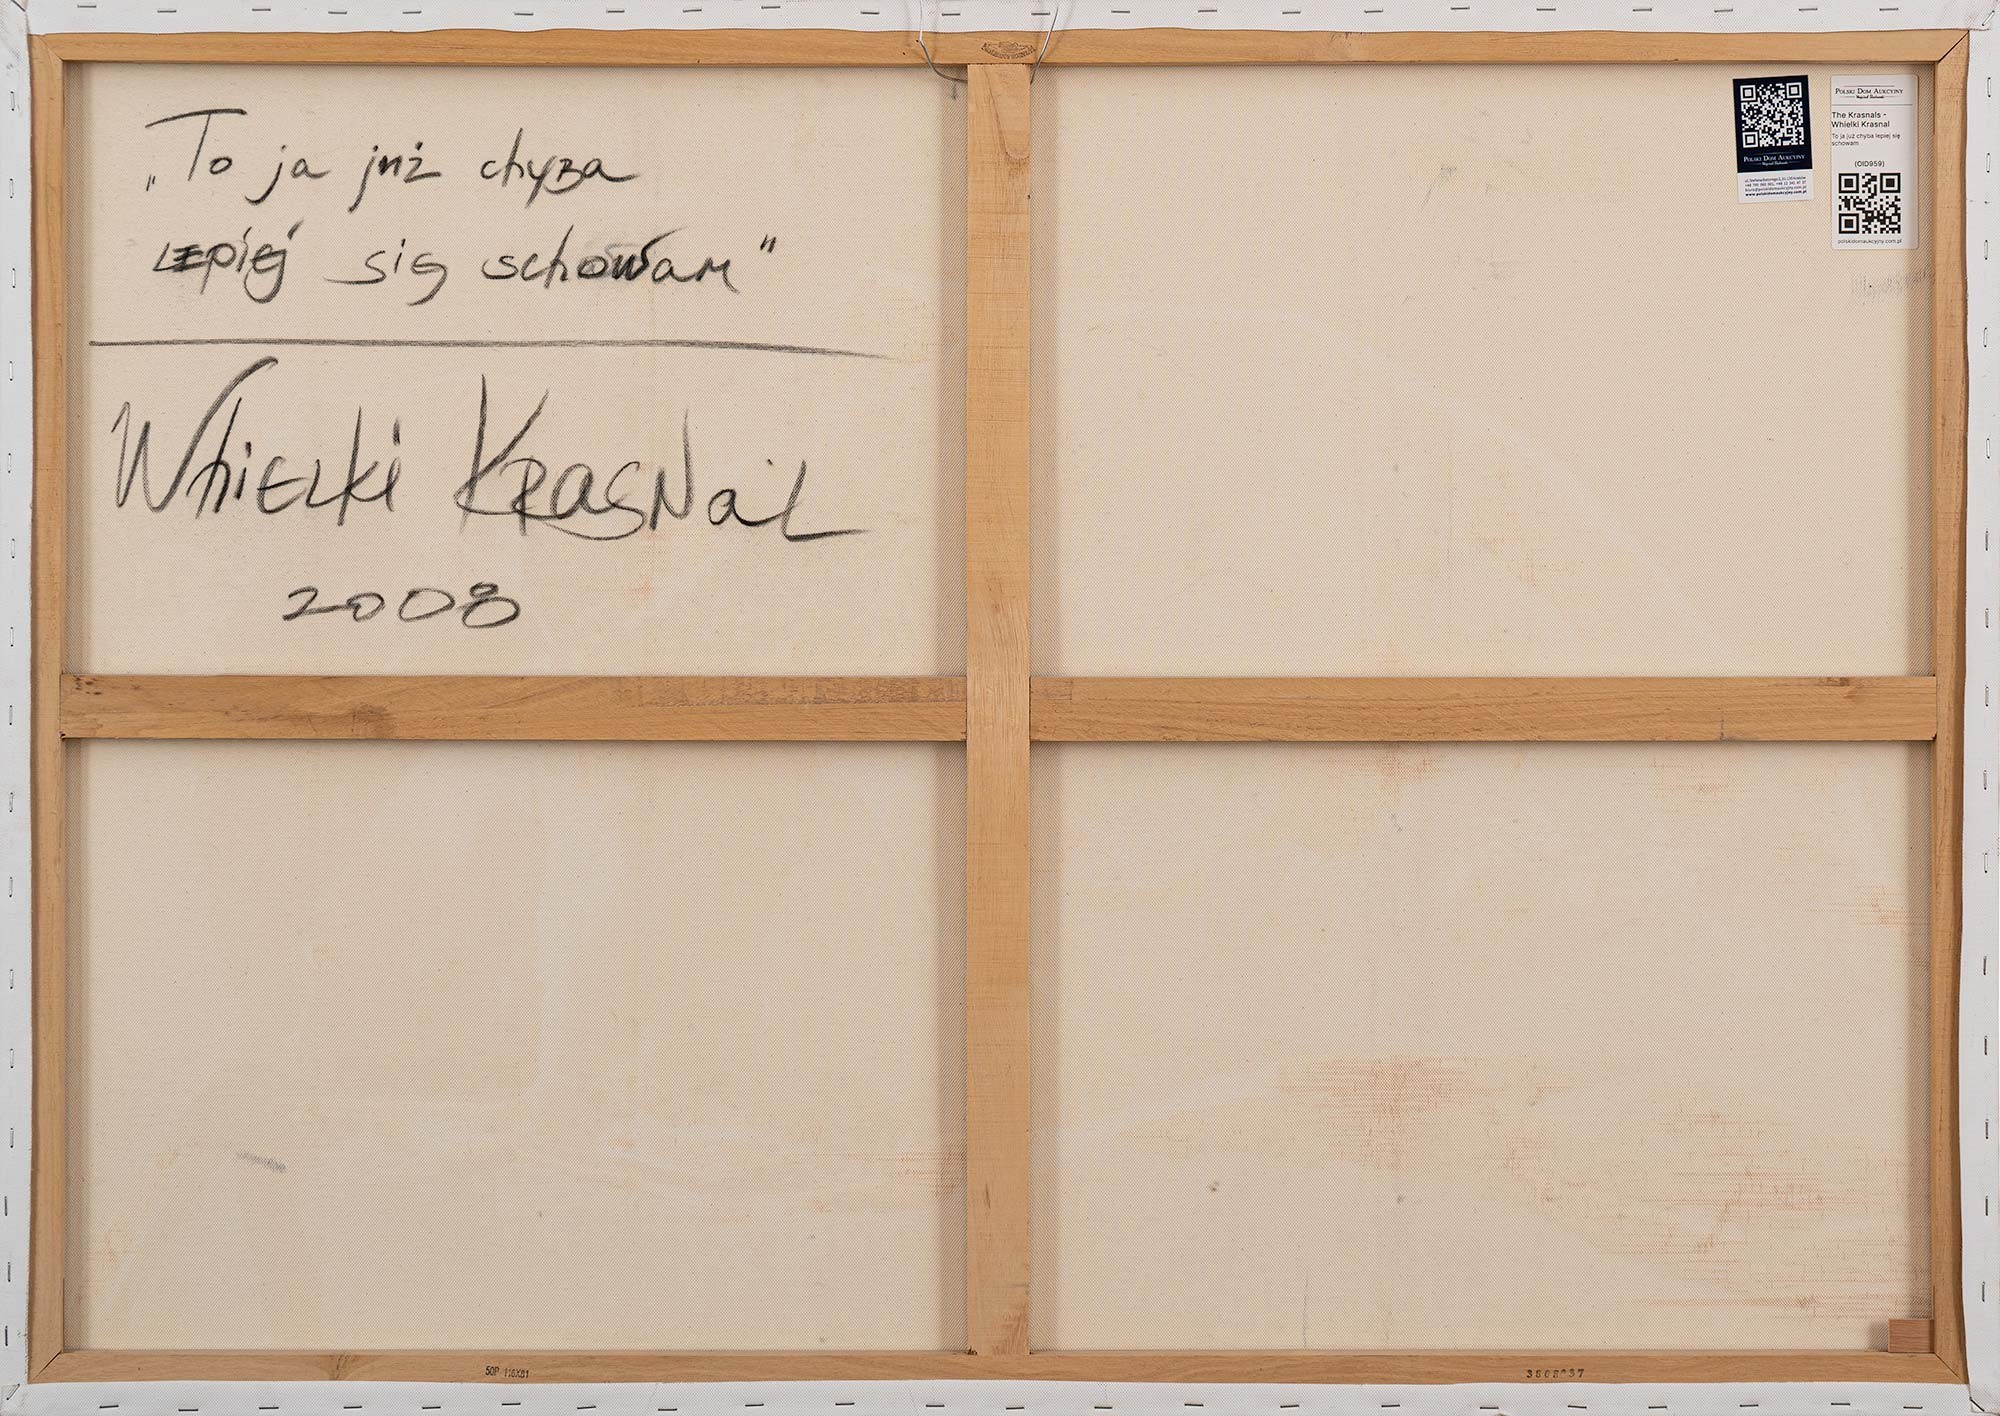 „To ja już chyba
lepiej się schowam”
Whielki Krasnal
2008
Polski Dom Aukcyjny
Polski Dom Aukcyjny
The Krasnals -
Whielki Krasnal
To ja już chyba lepiej się
schowam
(OID959)
polskidomaukcyjny.com.pl
www.polskidomaukcyjny.com.pl
50P 116X81